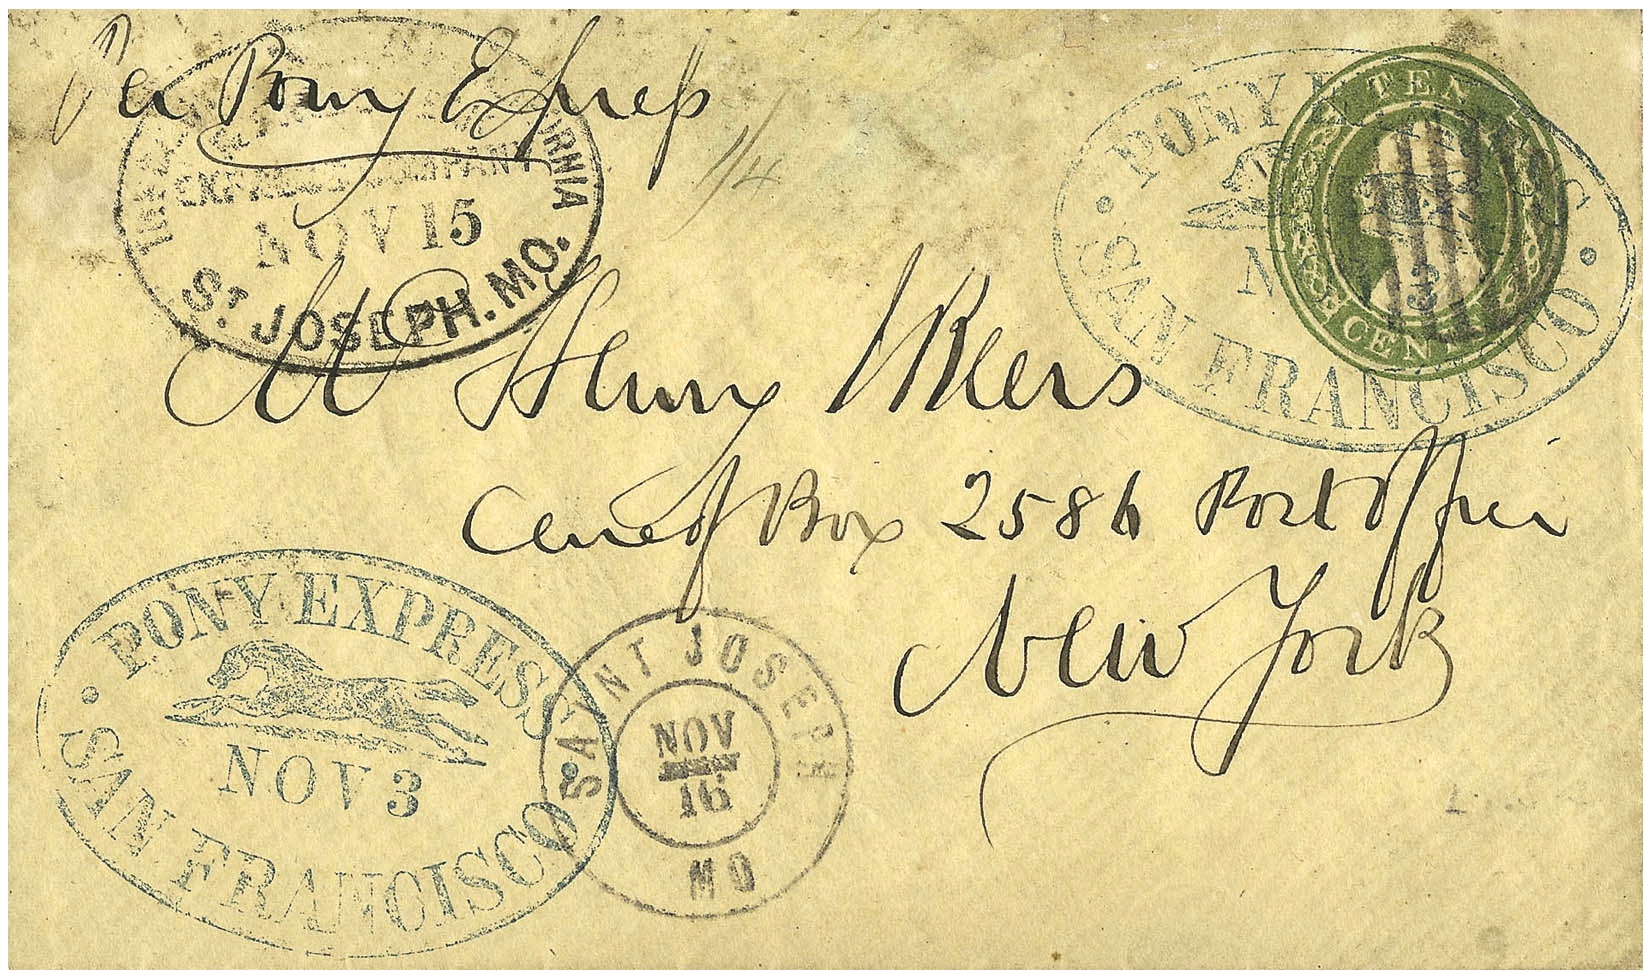 Per Pony Express
1/4
THE CALIFORNIA
EXPRESS COMPANY
NOV 15
ST. JOSEPH. MO.
PONY EXPRESS
N 3
SAN FRANCISCO
TEN
CENTS
Henry Beers
Care of Box 2586 Post Office
New York
PONY EXPRESS
NOV 3
SAN FRANCISCO
SAINT JOSEPH
NOV
16
MO